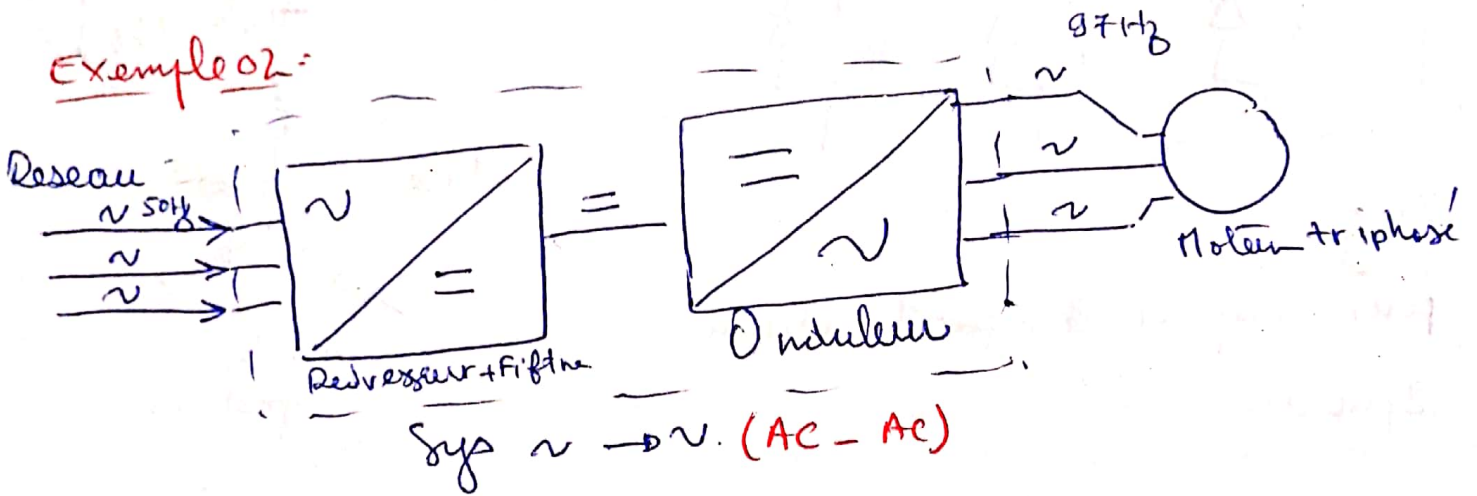 Exemple 02:
97Hz
Reseau
~ 50Hz
~
~
~
=
=
=
~
~
~
~
Moteur triphasé
Redresseur + Filtre
Onduleur
Sys ~ → ~. (AC - AC)